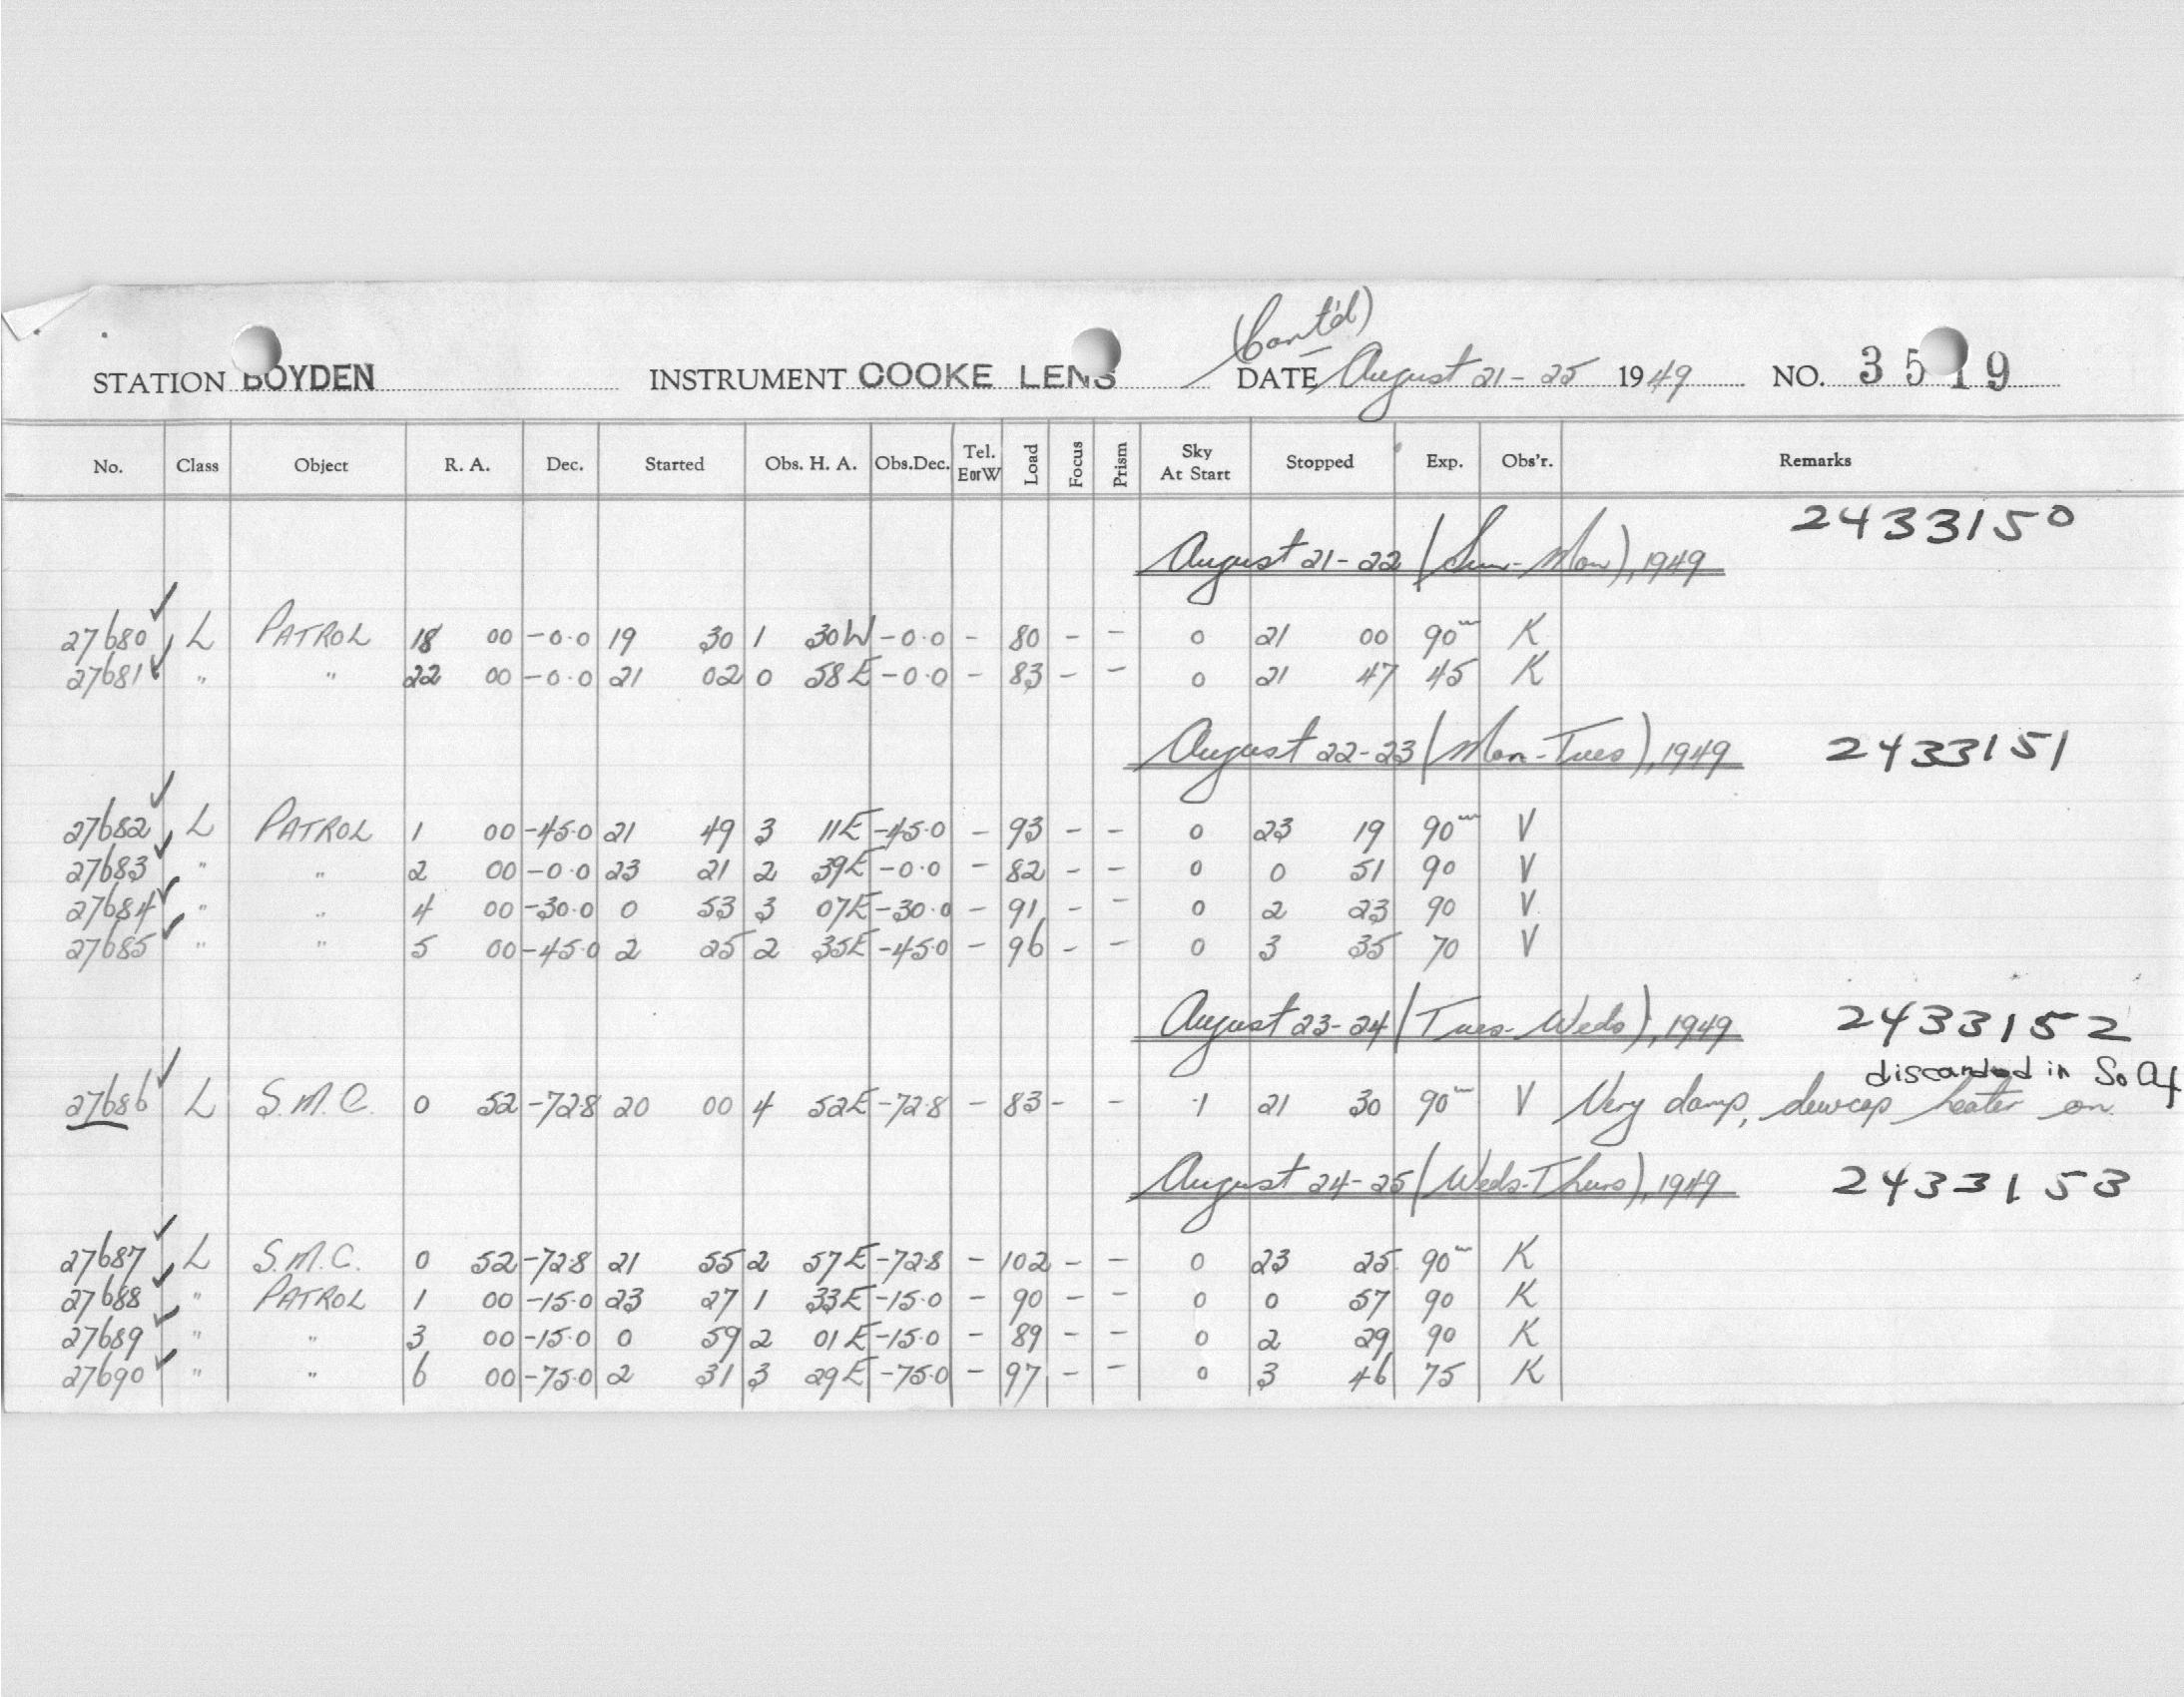 (Cont'd)
STATION BOYDEN INSTRUMENT COOKE LENS DATE August 21-25 1949 NO. 3519
No. Class Object R. A. Dec. Started Obs. H. A. Obs.Dec. Tel. EorW Load Focus Prism Sky At Start Stopped Exp. Obs'r. Remarks
2433150
August 21-22 (Sun-Mon), 1949
27680 ✓ L PATROL 18 00 -0.0 19 30 1 30W -0.0 - 80 - - 0 21 00 90m K
27681 ✓ " " 22 00 -0.0 21 02 0 58E -0.0 - 83 - - 0 21 47 45 K
August 22-23 (Mon-Tues), 1949 2433151
27682 ✓ L PATROL 1 00 -45.0 21 49 3 11E -45.0 - 93 - - 0 23 19 90m V
27683 ✓ " " 2 00 -0.0 23 21 2 39E -0.0 - 82 - - 0 0 51 90 V
27684 ✓ " " 4 00 -30.0 0 53 3 07E -30.0 - 91 - - 0 2 23 90 V
27685 ✓ " " 5 00 -45.0 2 25 2 35E -45.0 - 96 - - 0 3 35 70 V
August 23-24 (Tues-Weds), 1949 2433152
discarded in So Af
27686 ✓ L S.M.C. 0 52 -72.8 20 00 4 52E -72.8 - 83 - - 1 21 30 90m V Very damp, dewcap heater on
August 24-25 (Weds-Thurs), 1949 2433153
27687 ✓ L S.M.C. 0 52 -72.8 21 55 2 57E -72.8 - 102 - - 0 23 25 90m K
27688 ✓ " PATROL 1 00 -15.0 23 27 1 33E -15.0 - 90 - - 0 0 57 90 K
27689 ✓ " " 3 00 -15.0 0 59 2 01E -15.0 - 89 - - 0 2 29 90 K
27690 ✓ " " 6 00 -75.0 2 31 3 29E -75.0 - 97 - - 0 3 46 75 K